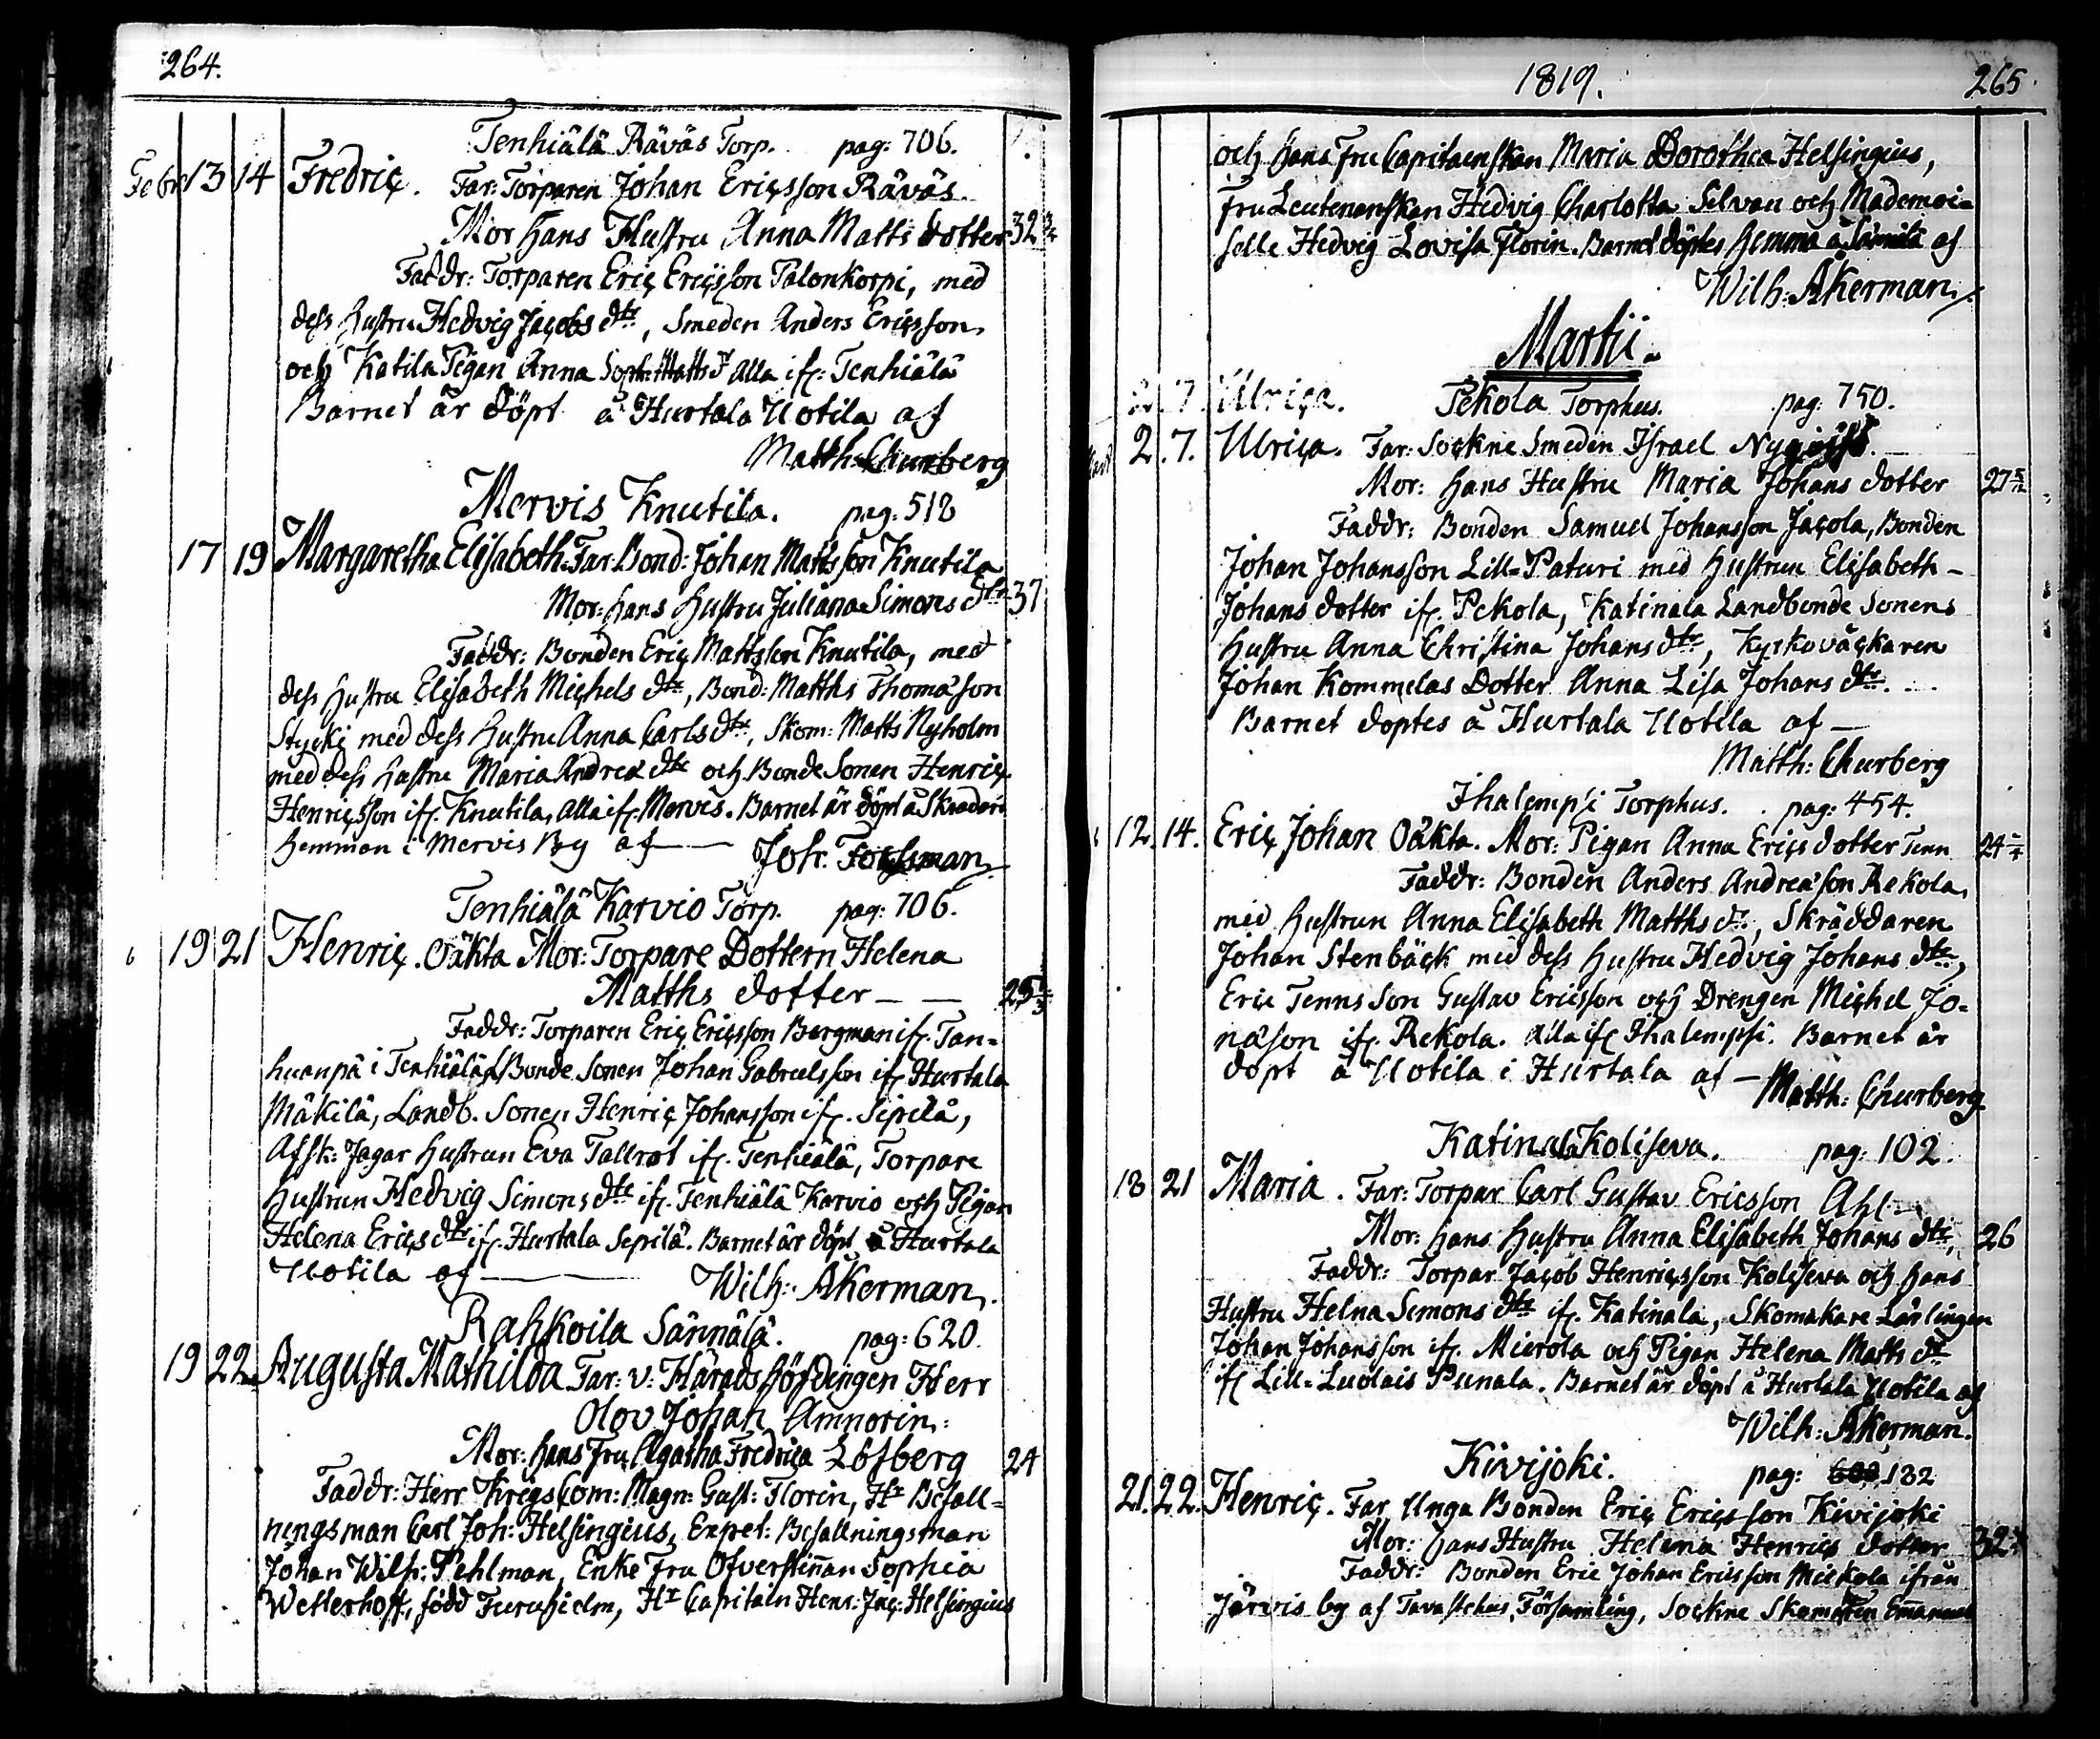 264.
Tenhiälä Räväs Torp. pag: 706.
Febr 13 14 Fredric. Far: Torparen Johan Ericsson Räväs.
Mor hans Hustru Anna Matts dotter 32
Faddr: Torparen Eric Ericsson Palonkorpi, med
dess Hustru Hedvig Jacobs dtr, Smeden Anders Ericsson,
och Katila Pigan Anna Soph: Matts d alla ifr: Tenhiälä
Barnet är döpt å Hurtala Uotila af
Matth: Churberg
Mervis Knutila. pag: 518
17 19 Margaretha Elisabeth. Far: Bond: Johan Mattsson Knutila
Mor: hans Hustru Juliana Simons dtr 37
Faddr: Bonden Eric Mattsson Knutila, med
dess Hustru Elisabeth Michels dtr, Bond: Matths Thomasson
Stycki med dess Hustru Anna Carls dtr, Skom: Matts Nyholm
med dess Hustru Maria Andreæ dtr och Bonde Sonen Henric
Henricsson ifr. Knutila, alla ifr. Mervis. Barnet är döpt å Skräddari
hemman i Mervis By af — Joh: Forssman
Tenhiälä Karvio Torp. pag: 706.
19 21 Henric. Oäkta Mor: Torpare Dottern Helena
Matths dotter — — 25
Faddr: Torparen Eric Ericsson Bergman ifr. Tan=
huanpä i Tenhiälä, Bonde Sonen Johan Gabrielsson ifr Hurtala
Mäkilä, Landb. Sonen Henric Johansson ifr. Sepilä,
Afsk: Jagar Hustrun Eva Tallrot ifr. Tenhiälä, Torpare
Hustrun Hedvig Simons dtr ifr. Tenhiälä Karvio och Pigan
Helena Erics dtr ifr. Hurtala Sepilä. Barnet är döpt å Hurtala
Uotila af — Wilh: Åkerman.
Rahkoila Sännälä. pag: 620.
19 22 Augusta Mathilda Far: v: Häradshöfdingen Herr
Olov Johan Amnorin:
Mor: hans Fru Agatha Fredrica Löfberg 24
Faddr: Herr Krigs Com: Magn: Gust: Florin, Hr Befall=
ningsman Carl Joh: Helsingius, Expet: Befallningsman
Johan Wilh: Pehlman, Enke Fru Öfverstinnan Sophia
Wetterhoff, född Furuhielm, Hr Capitain Henr: Jac: Helsingius
1819. 265
och hans Fru Capitainskan Maria Dorothea Helsingius,
Fru Leutenanskan Hedvig Charlotta Silvan och Mademoi=
selle Hedvig Lovisa Florin. Barnet döptes hemma å Sännälä af
Wilh: Åkerman.
Martii.
7 Ulrica. Pekola Torphus. pag: 750.
2. 7. Ulrica. Far: Sockne Smeden Israel
Mor: hans Hustru Maria Johans dotter 27
Faddr: Bonden Samuel Johansson Jacola, Bonden
Johan Johansson Lill=Paturi med Hustrun Elisabeth —
Johans dotter ifr. Pekola, Katinala Landbonde Sonens
Hustru Anna Christina Johans dtr, Kyrkoväckaren
Johan Kommelas Dotter Anna Lisa Johans dtr.
Barnet döptes å Hurtala Uotila af —
Matth: Churberg
Ihalempi Torphus. pag: 454.
12. 14. Eric Johan Oäkta. Mor: Pigan Anna Erics dotter Tenn 24
Faddr: Bonden Anders Andreason Rekola,
med Hustrun Anna Elisabeth Matths dr, Skräddaren
Johan Stenbäck med dess Hustru Hedvig Johans dtr,
Eric Tenns Son Gustav Ericsson och Drengen Michel Jo=
nason ifr. Rekola. Alla ifr Ihalempi. Barnet är
döpt å Uotila i Hurtala af — Matth: Churberg.
Katinala Koliseva. pag: 102.
18 21 Maria. Far: Torpar Carl Gustav Ericsson Ahl —
Mor: hans Hustru Anna Elisabeth Johans dtr, 26
Faddr: Torpar Jacob Henricsson Koliseva och hans
Hustru Helna Simons dtr ifr. Katinala, Skomakare Lärlingen
Johan Johansson ifr. Mierola och Pigan Helena Matts dr
ifr Lill=Luolais Punala. Barnet är döpt å Hurtala Uotila af
Wilh: Åkerman.
Kivijoki. pag: 132
21. 22. Henric. Far Unga Bonden Eric Ericsson Kivijoki
Mor: hans Hustru Helena Henrics dotter 32
Faddr: Bonden Eric Johan Ericsson Mickola ifrån
Järvis by af Tavastehus Församling, Sockne Skomakaren Emanuel